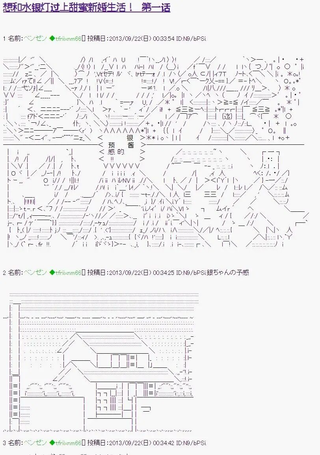 想和水银灯过上甜蜜新婚生活! 第一话
1 名前:ベンゼン ◆[] 投稿日:2013/09/22(日) 00:33:54 ID:N9/bPSi
銀
醬
的
預
感
2 名前:ベンゼン ◆[] 投稿日:2013/09/22(日) 00:34:25 ID:N9/bPSi銀ちゃんの予感
3 名前:ベンゼン ◆[] 投稿日:2013/09/22(日) 00:34:42 ID:N9/bPSi